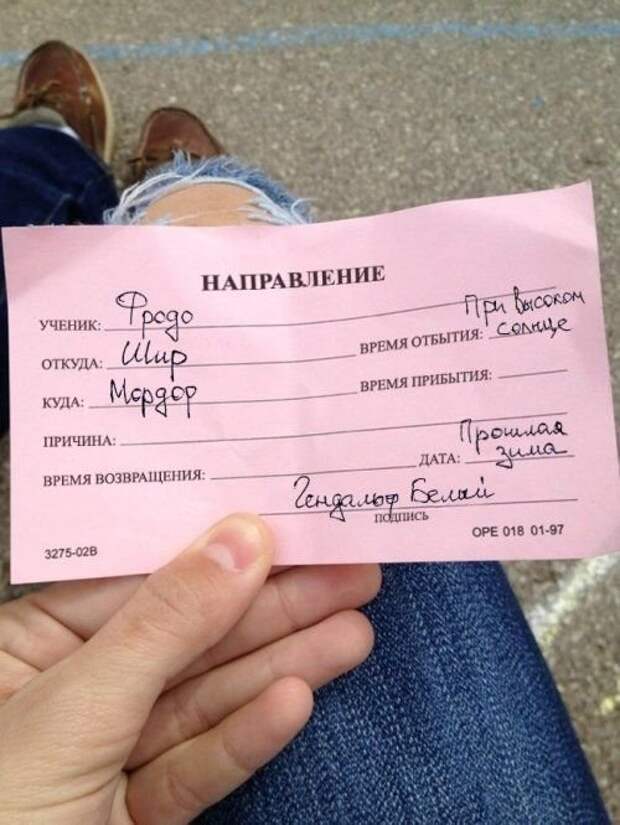 НАПРАВЛЕНИЕ
УЧЕНИК: Фродо
При высоком
ОТКУДА: Шир ВРЕМЯ ОТБЫТИЯ: солнце
КУДА: Мордор ВРЕМЯ ПРИБЫТИЯ:
ПРИЧИНА:
Прошлая
ВРЕМЯ ВОЗВРАЩЕНИЯ: ДАТА: зима
Гендальф Белый
ПОДПИСЬ
3275-02В OPE 018 01-97